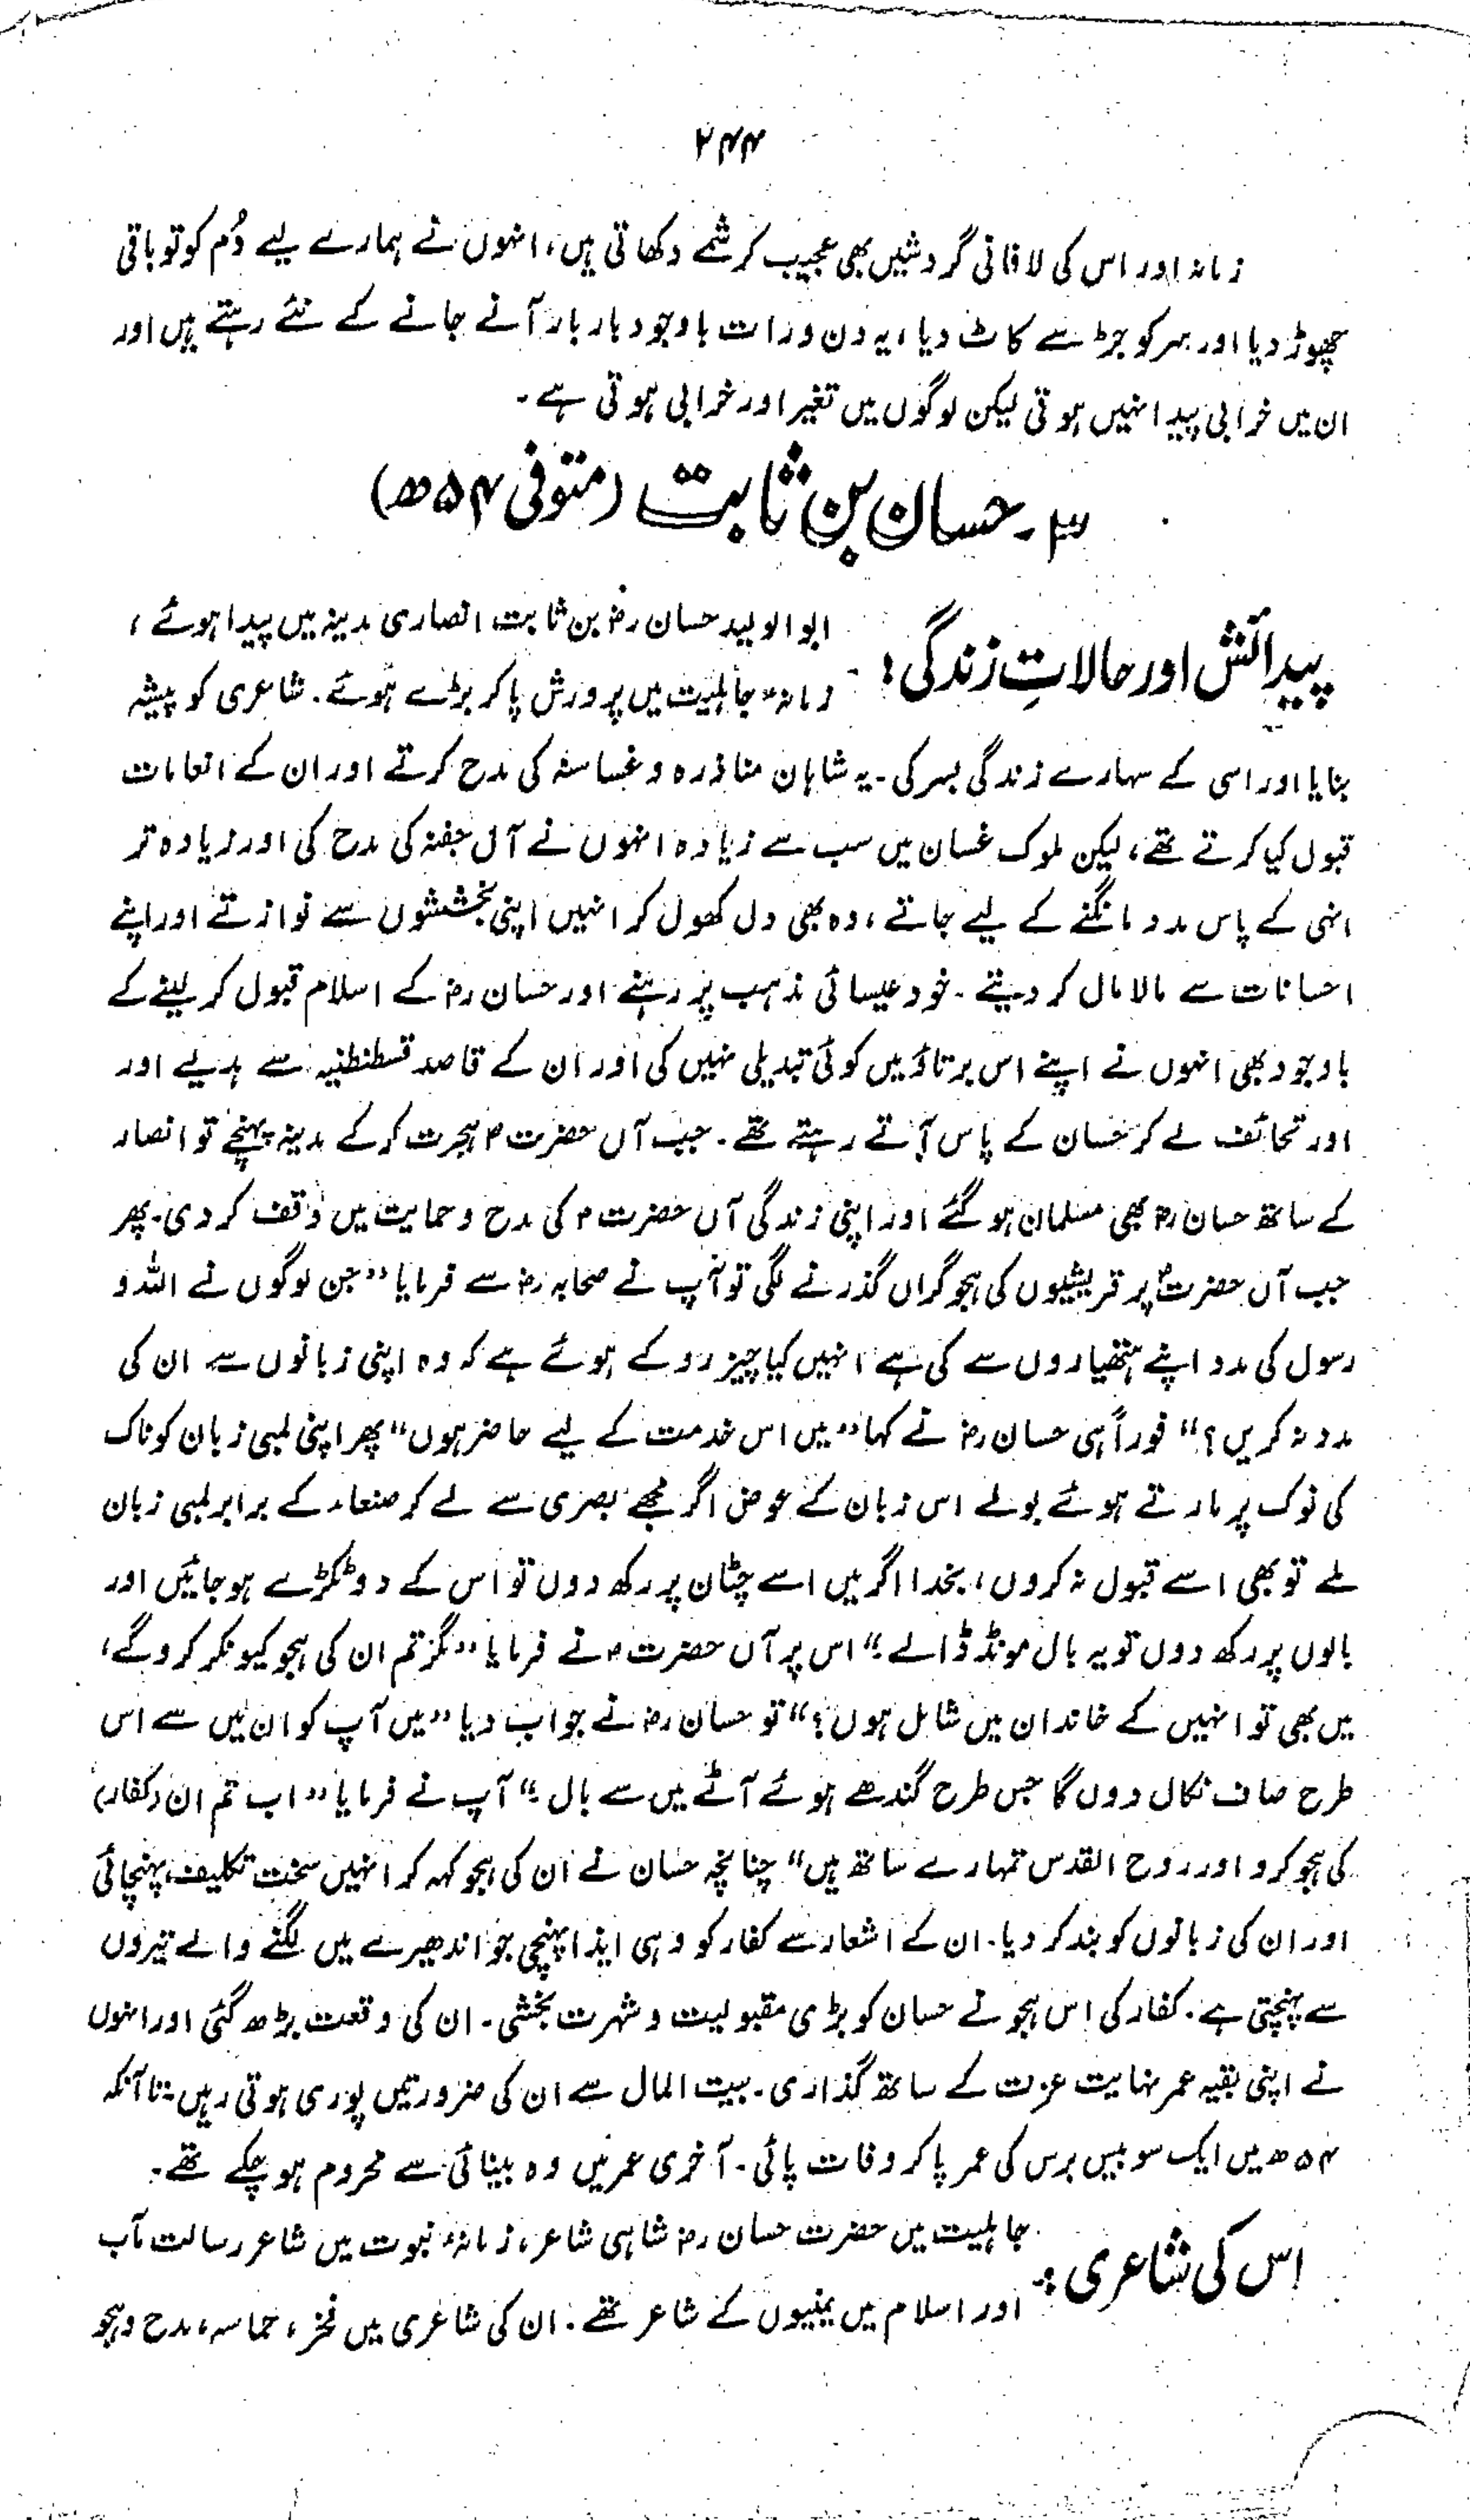 ۲۴۴
زمانہ اور اس کی لافانی گردشیں بھی عجیب کرشمے دکھاتی ہیں، انہوں نے ہمارے لیے دُم کو تو باقی
چھوڑ دیا اور سر کو جڑ سے کاٹ دیا، یہ دن و رات باوجود بار بار آنے جانے کے نئے رہتے ہیں اور
ان میں خرابی پیدا نہیں ہوتی لیکن لوگوں میں تغیر اور خرابی ہوتی ہے۔
۳۔ حسان بن ثابت (متوفی ۵۴ھ)
پیدائش اور حالاتِ زندگی: ابو الولید حسان رضؓ بن ثابت انصاری مدینہ میں پیدا ہوئے،
زمانۂ جاہلیت میں پرورش پا کر بڑے ہوئے۔ شاعری کو پیشہ
بنایا اور اسی کے سہارے زندگی بسر کی۔ یہ شاہان مناذرہ و غساسنہ کی مدح کرتے اور ان کے انعامات
قبول کیا کرتے تھے، لیکن ملوک غسان میں سب سے زیادہ انہوں نے آل جفنہ کی مدح کی اور زیادہ تر
انہی کے پاس مدد مانگنے کے لیے جاتے، وہ بھی دل کھول کر انہیں اپنی بخششوں سے نوازتے اور اپنے
احسانات سے مالا مال کر دیتے۔ خود عیسائی مذہب پر رہنے اور حسان رضؓ کے اسلام قبول کر لینے کے
باوجود بھی انہوں نے اپنے اس برتاؤ میں کوئی تبدیلی نہیں کی اور ان کے قاصد قسطنطنیہ سے ہدیے اور
اور تحائف لے کر حسان کے پاس آتے رہتے تھے۔ جب آں حضرت ؐ ہجرت کر کے مدینہ پہنچے تو انصار
کے ساتھ حسان رضؓ بھی مسلمان ہو گئے اور اپنی زندگی آں حضرت ؐ کی مدح و حمایت میں وقف کر دی۔ پھر
جب آں حضرتؐ پر قریشیوں کی ہجو گراں گذرنے لگی تو آپ نے صحابہ رضؓ سے فرمایا "جن لوگوں نے اللہ و
رسول کی مدد اپنے ہتھیاروں سے کی ہے انہیں کیا چیز روکے ہوئے ہے کہ وہ اپنی زبانوں سے ان کی
مدد نہ کریں؟" فوراً ہی حسان رضؓ نے کہا "میں اس خدمت کے لیے حاضر ہوں" پھر اپنی لمبی زبان کو ناک
کی نوک پر مارتے ہوئے بولے اس زبان کے عوض اگر مجھے بصری سے لے کر صنعاء کے برابر لمبی زبان
ملے تو بھی اسے قبول نہ کروں، بخدا اگر میں اسے چٹان پر رکھ دوں تو اس کے دو ٹکڑے ہو جائیں اور
بالوں پر رکھ دوں تو یہ بال مونڈ ڈالے۔" اس پر آں حضرت ؐ نے فرمایا "مگر تم ان کی ہجو کیونکر کرو گے،
میں بھی تو انہیں کے خاندان میں شامل ہوں؟" تو حسان رضؓ نے جواب دیا "میں آپ کو ان میں سے اس
طرح صاف نکال دوں گا جس طرح گندھے ہوئے آٹے میں سے بال۔" آپ نے فرمایا "اب تم ان (کفار)
کی ہجو کرو اور روح القدس تمہارے ساتھ ہیں" چنانچہ حسان نے ان کی ہجو کہہ کر انہیں سخت تکلیف پہنچائی
اور ان کی زبانوں کو بند کر دیا۔ ان کے اشعار سے کفار کو وہی ایذا پہنچی جو اندھیرے میں لگنے والے تیروں
سے پہنچتی ہے۔ کفار کی اس ہجو نے حسان کو بڑی مقبولیت و شہرت بخشی۔ ان کی وقعت بڑھ گئی اور انہوں
نے اپنی بقیہ عمر نہایت عزت کے ساتھ گذاری۔ بیت المال سے ان کی ضرورتیں پوری ہوتی رہیں۔ تا آنکہ
۵۴ھ میں ایک سو بیس برس کی عمر پا کر وفات پائی۔ آخری عمر میں وہ بینائی سے محروم ہو چکے تھے۔
اس کی شاعری: جاہلیت میں حضرت حسان رضؓ شاہی شاعر، زمانۂ نبوت میں شاعر رسالت مآب
اور اسلام میں یمنیوں کے شاعر تھے۔ ان کی شاعری میں فخر، حماسہ، مدح و ہجو